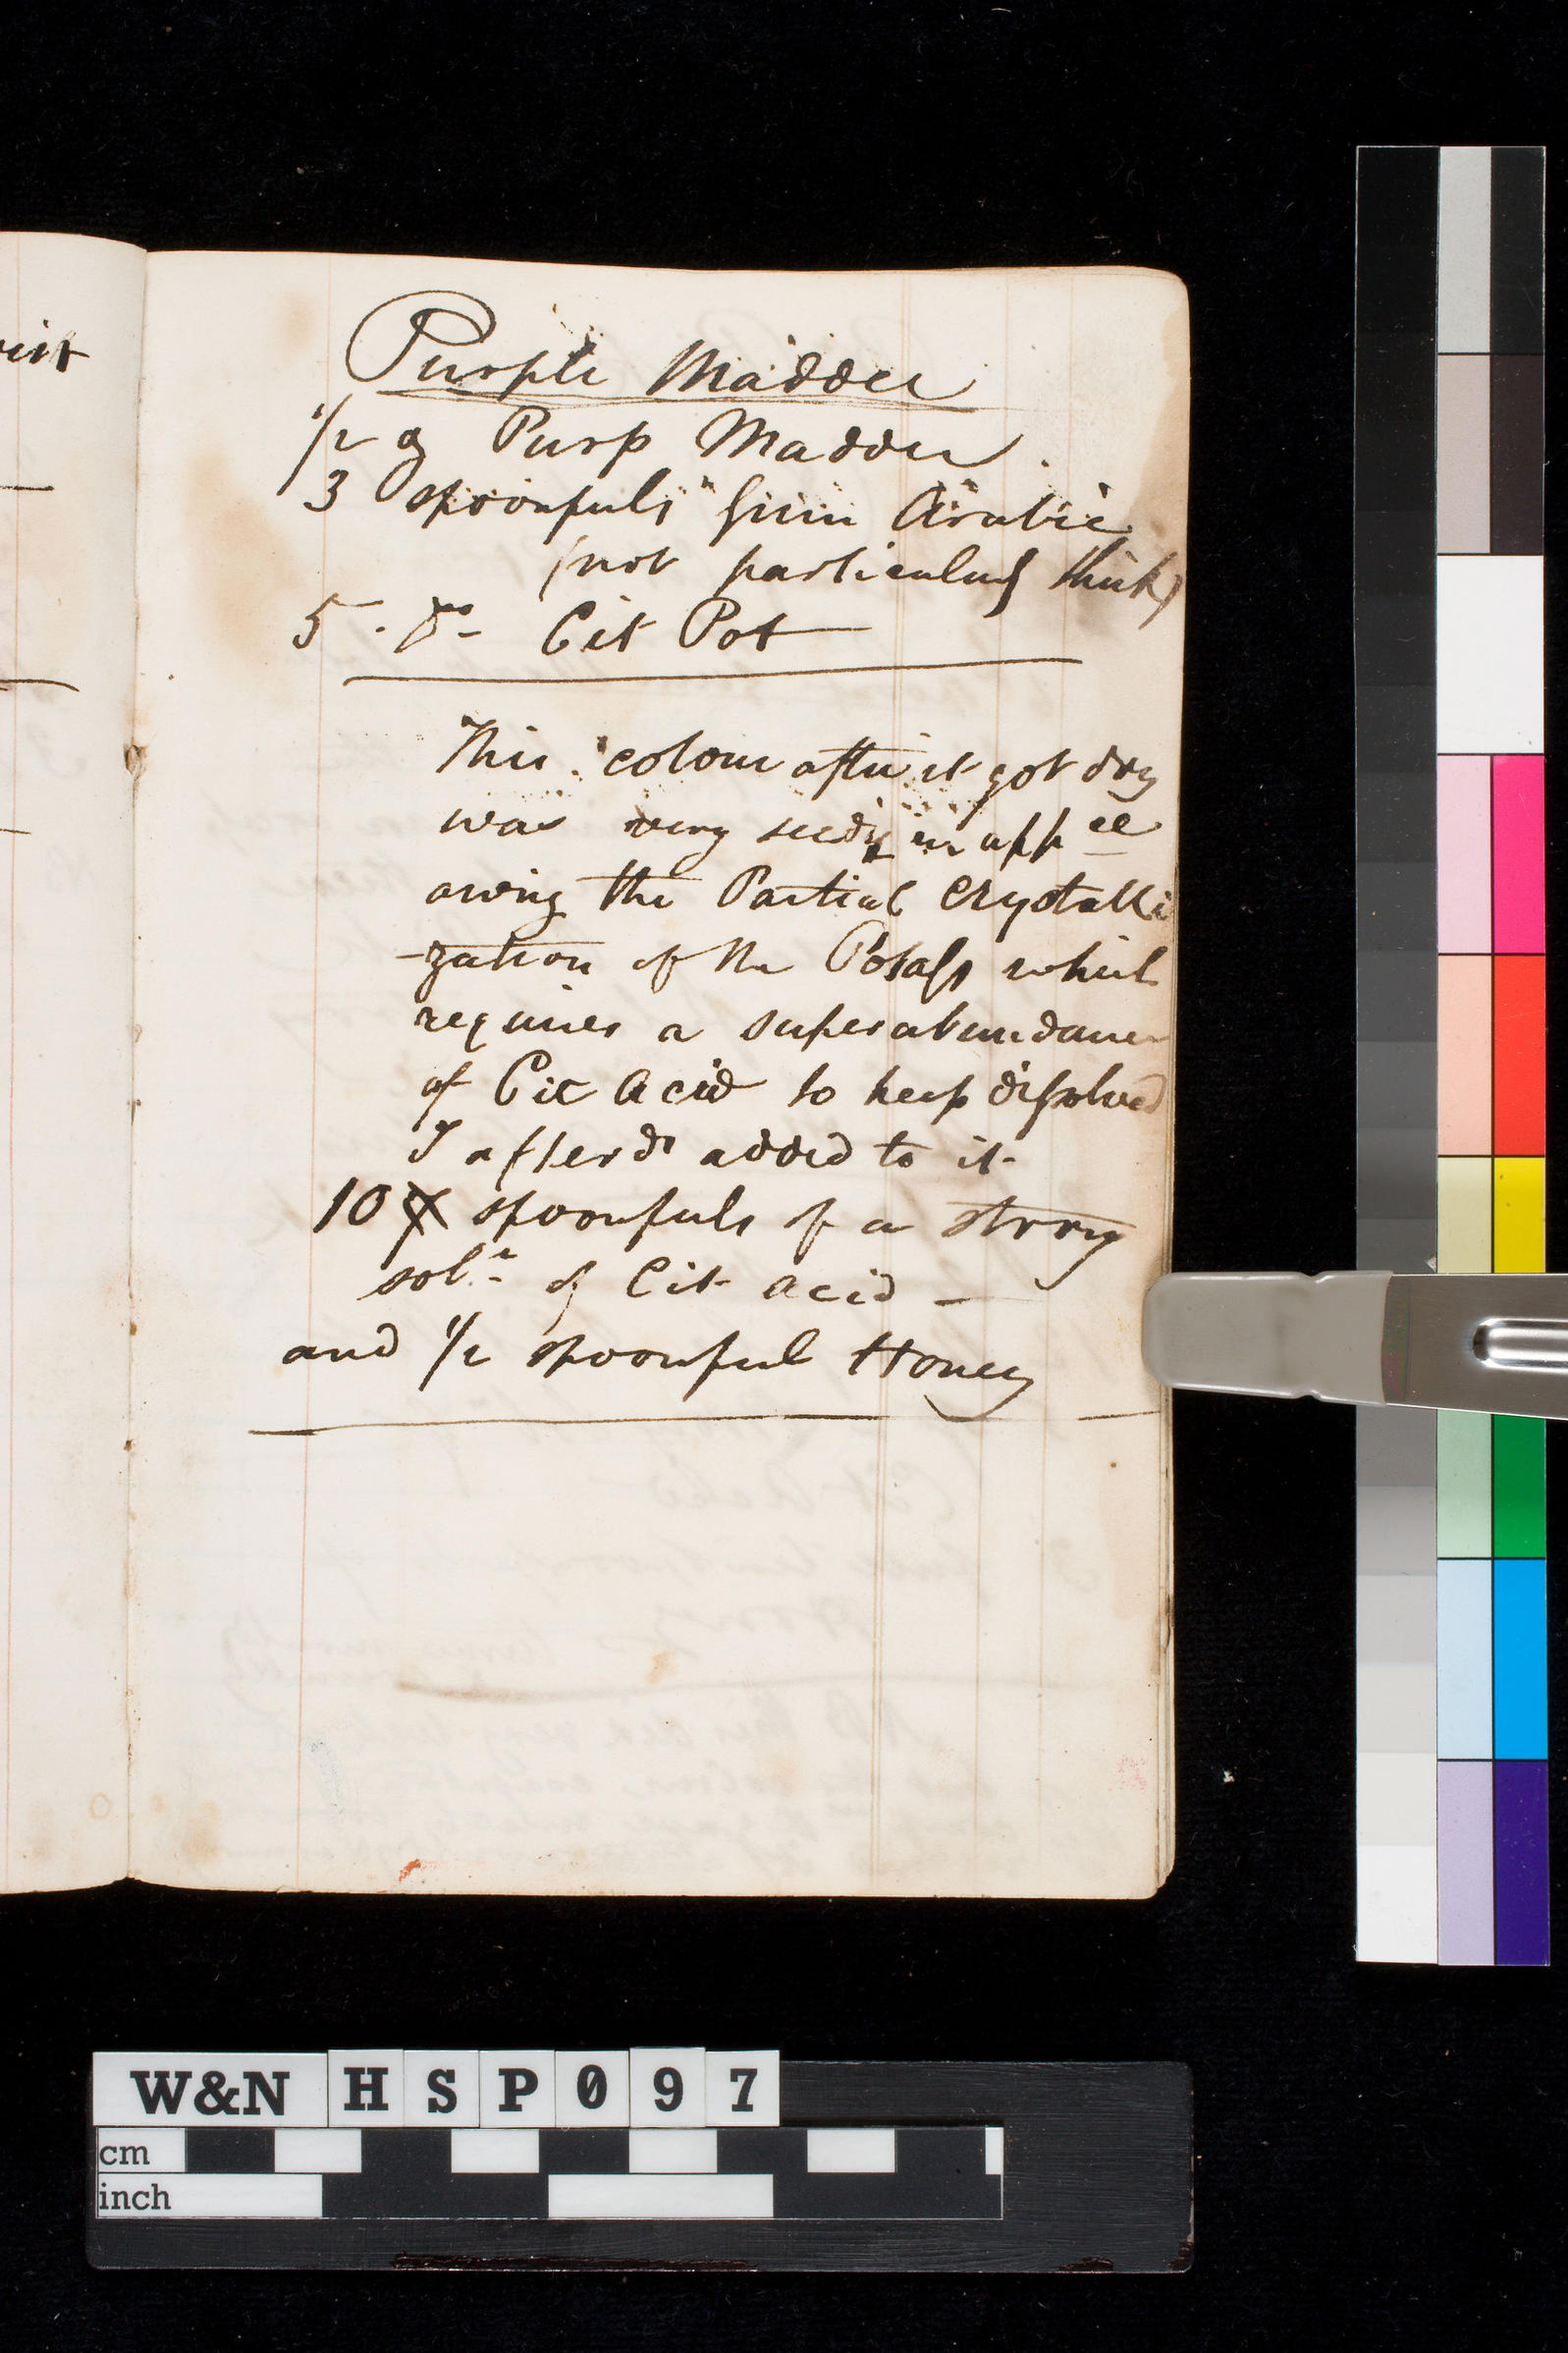 Purple Madder
1/2 oz Purp Madder.
3 spoonfuls Gum Arabic
(not particularly thick)
5 . do- Cit Pot
This colour after it got dry
was very seedy in appce
owing the Partial Crystalli
-zation of the Potass which
requires a superabundance
of Cit Acid to keep dissolved
I afterds added to it
10 spoonfuls of a strong
soln of Cit acid -
and 1/2 spoonful Honey
W&N HSP097
cm
inch